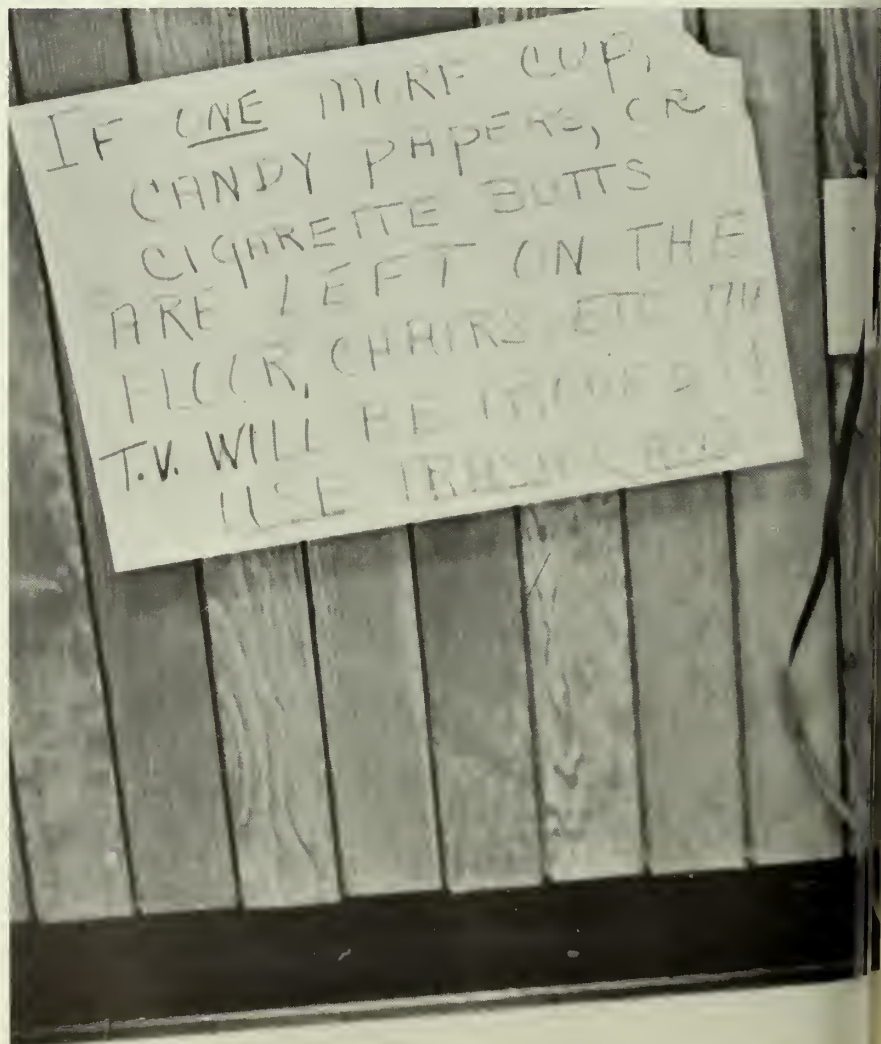 IF ONE MORE CUP,
CANDY PAPERS, OR
CIGARETTE BUTTS
ARE LEFT ON THE
FLOOR, CHAIRS ETC
T.V. WILL BE
USE